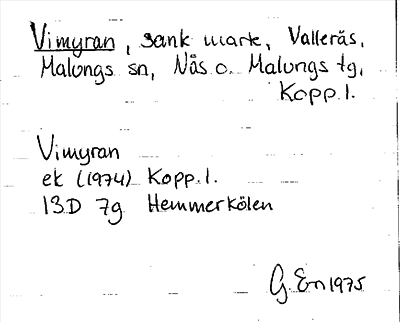 Vimyran, sank mark, Valleräs,
Malungs sn, Nås o. Malungs tg,
Kopp.l.
Vimyran
ek (1974) Kopp.l.
13D 7g Hemmerkölen
G. En 1975